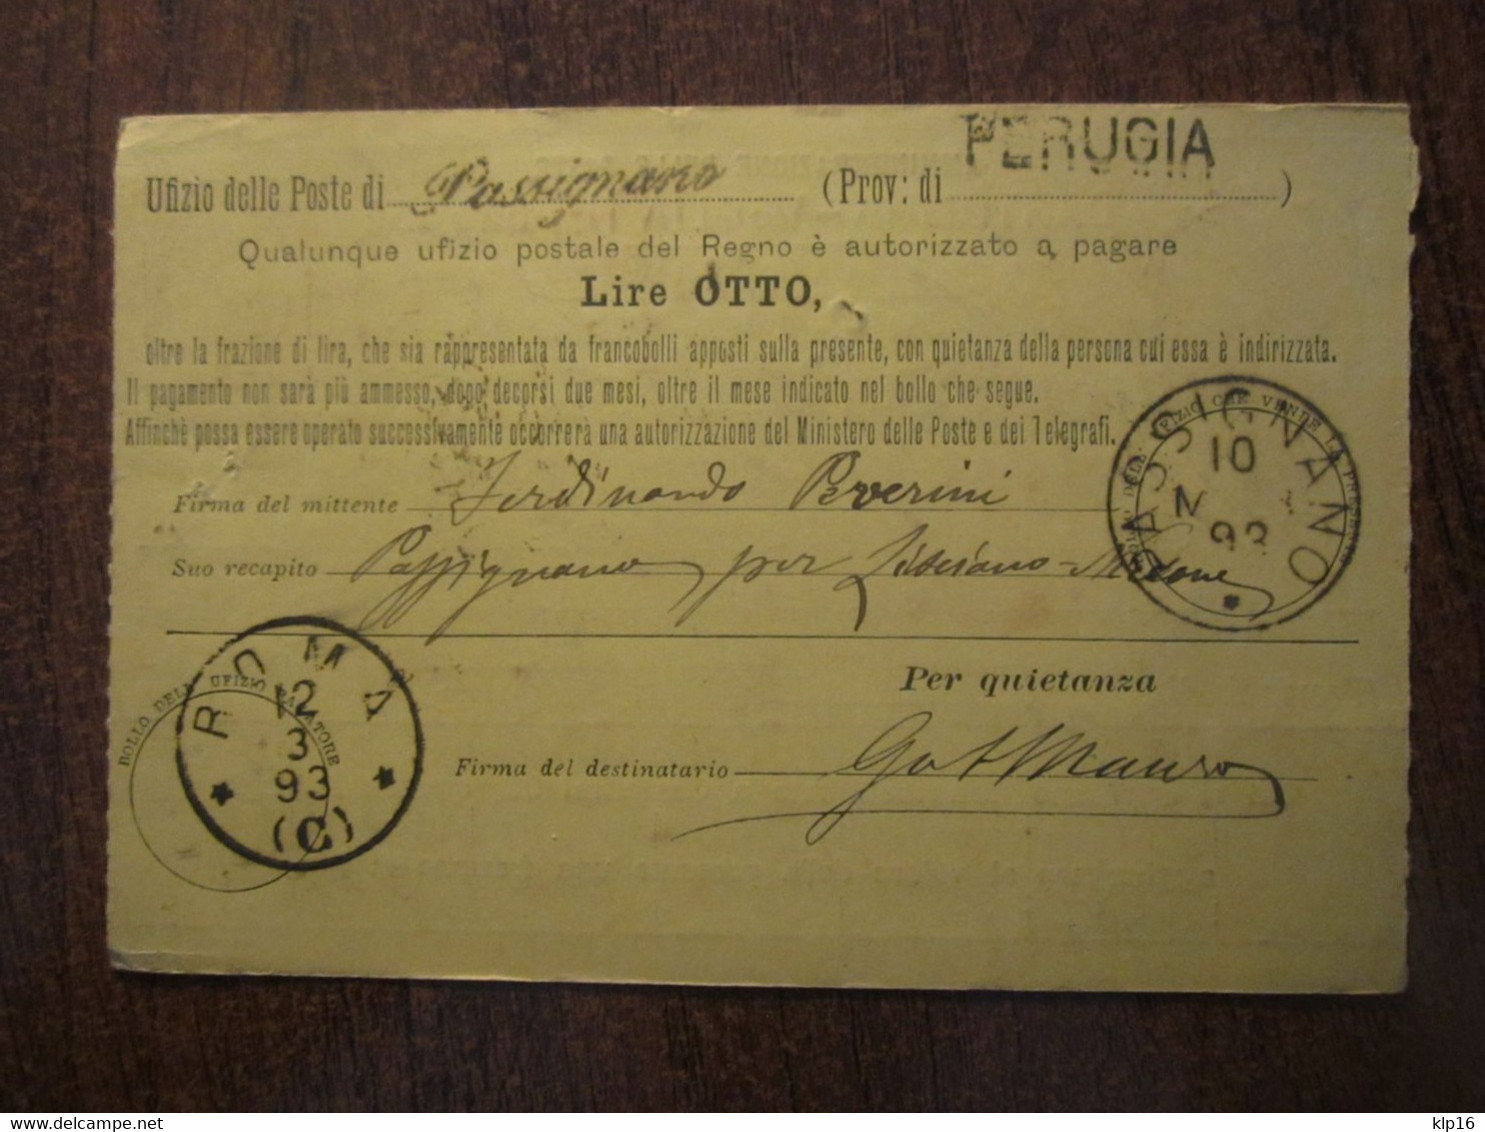 PERUGIA
Ufizio delle Poste di Passignano (Prov: di )
Qualunque ufizio postale del Regno è autorizzato a pagare
Lire OTTO,
oltre la frazione di lira, che sia rappresentata da francobolli apposti sulla presente, con quietanza della persona cui essa è indirizzata.
Il pagamento non sarà più ammesso, dopo decorsi due mesi, oltre il mese indicato nel bollo che segue.
Affinchè possa essere operato successivamente occorrerà una autorizzazione del Ministero delle Poste e dei Telegrafi.
PASSIGNANO
10
M
93
Firma del mittente Ferdinando Peverini
Suo recapito Passignano per
ROMA
12
3
93
(C)
BOLLO DELL' UFIZIO PAGATORE
Per quietanza
Firma del destinatario
Delcampe.net
klp16